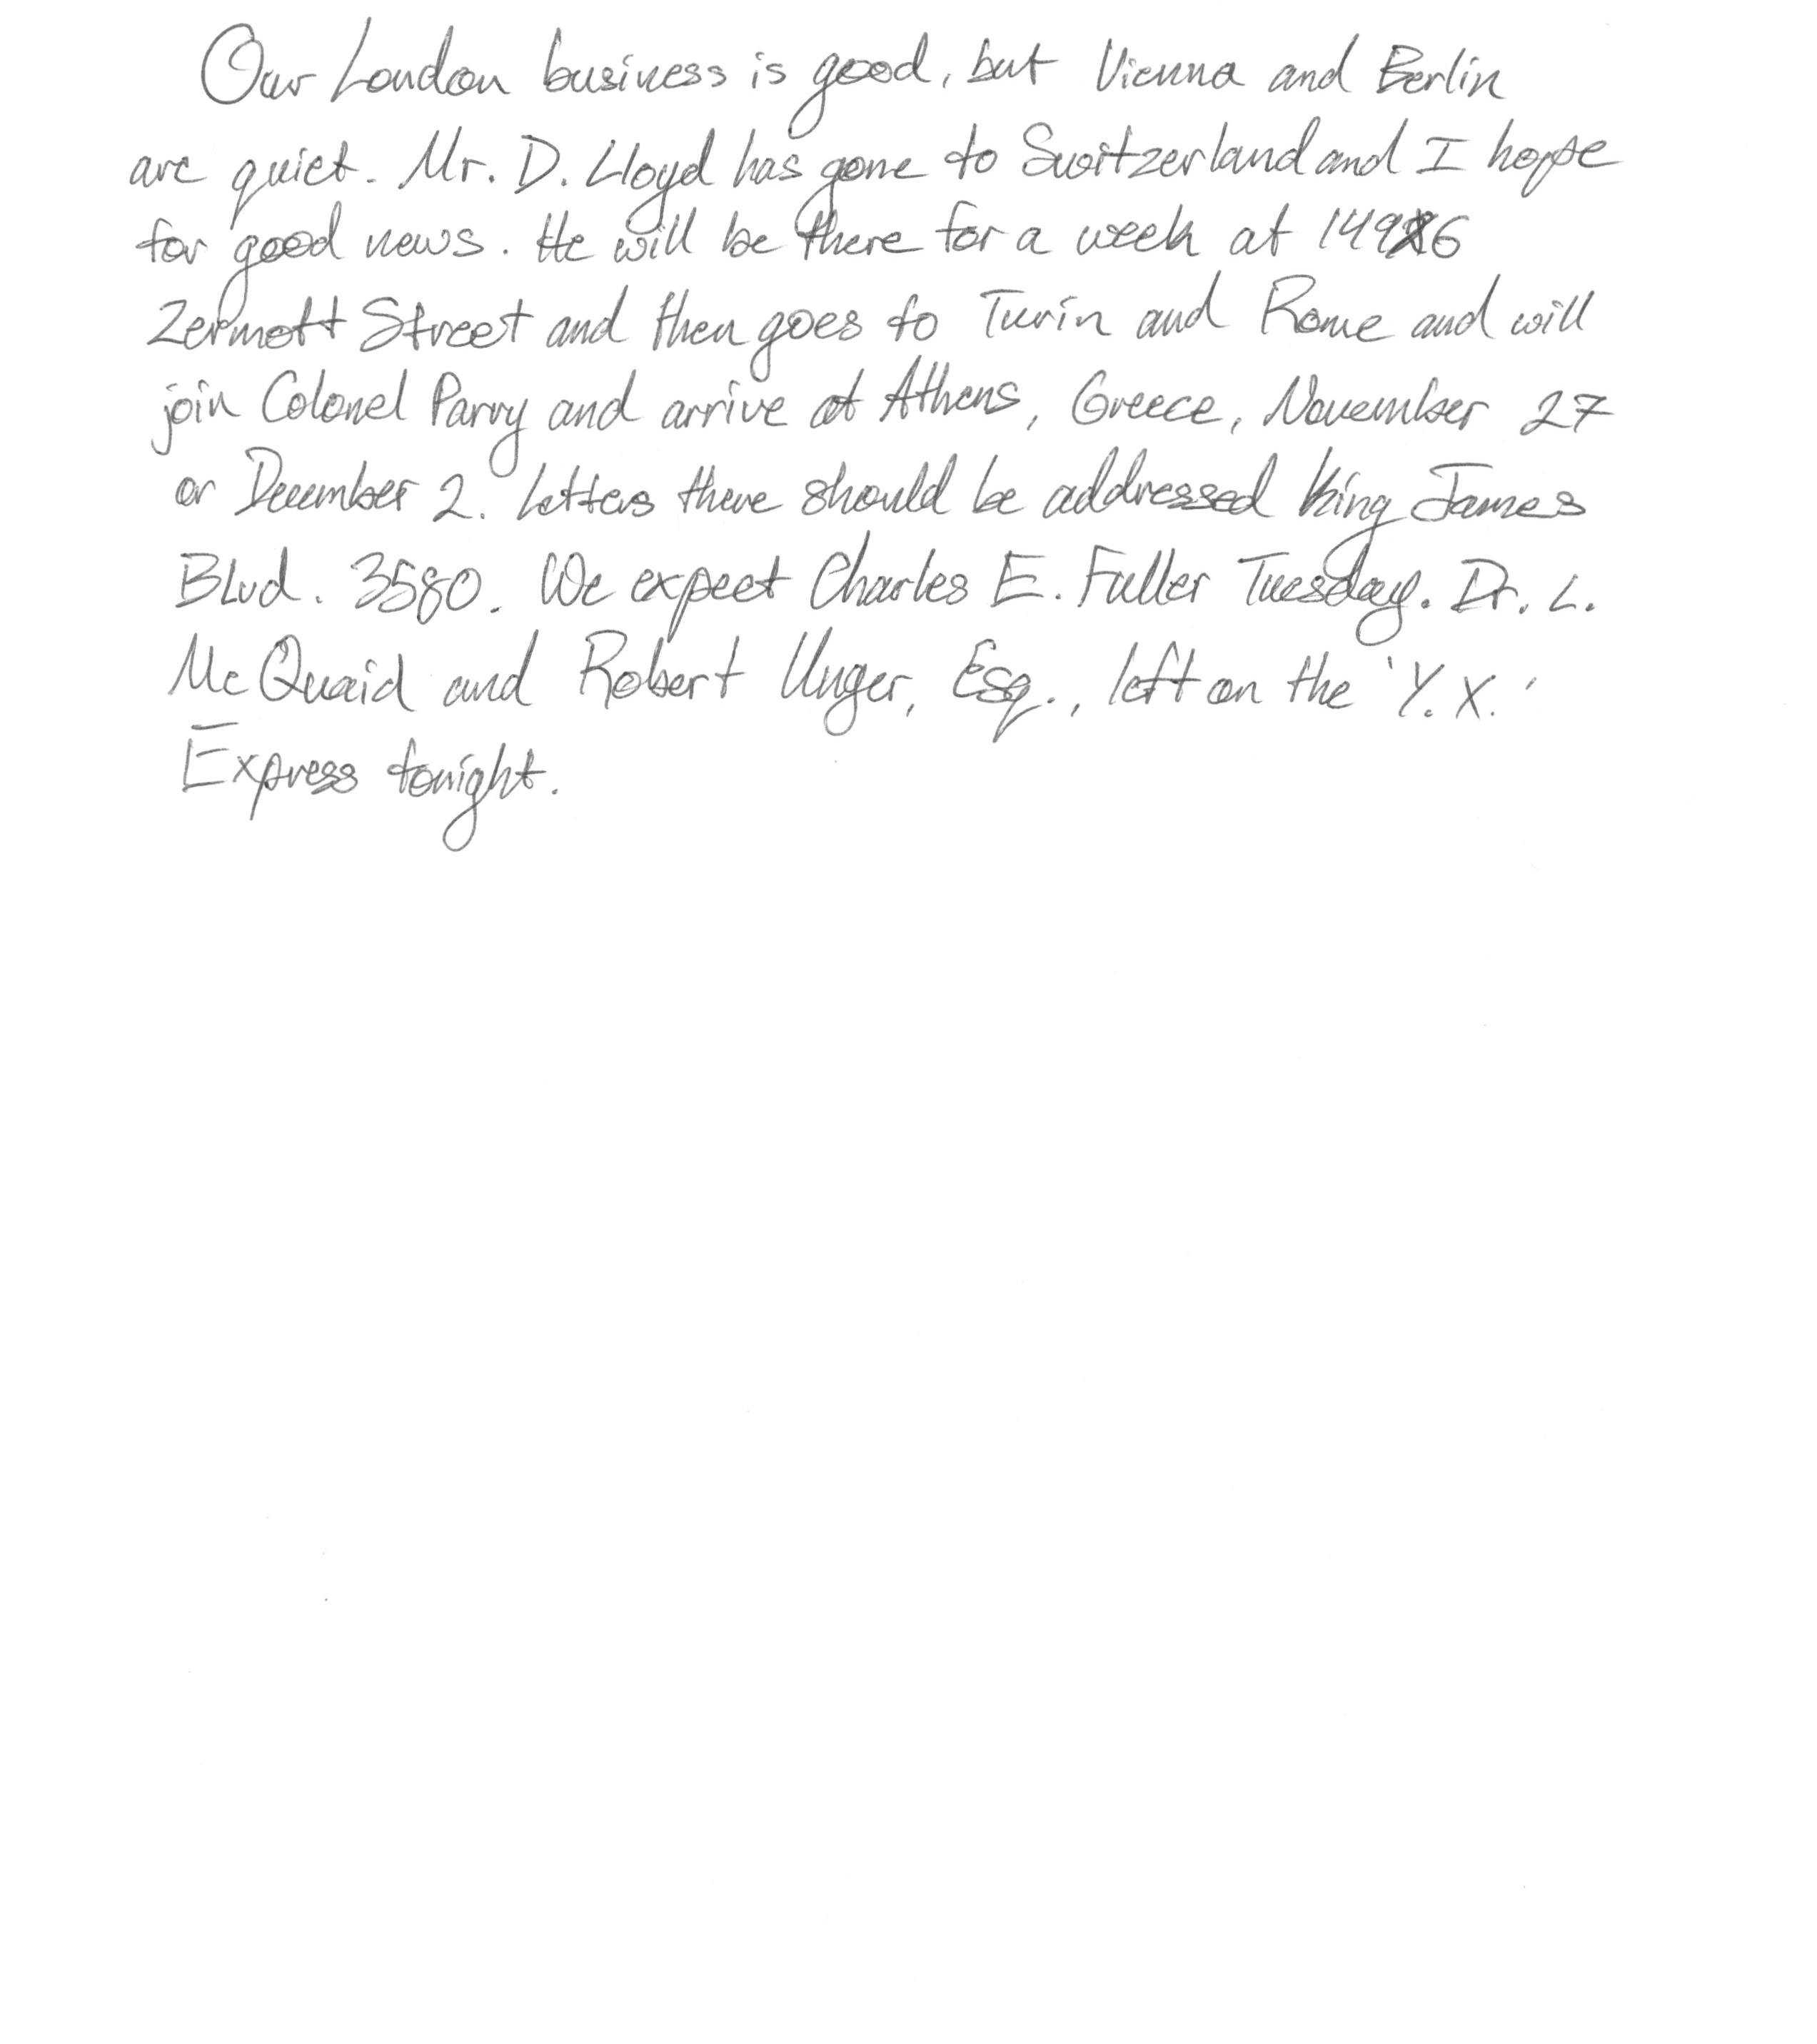 Our London business is good, but Vienna and Berlin
are quiet. Mr. D. Lloyd has gone to Switzerland and I hope
for good news. He will be there for a week at 1496
Zermott Street and then goes to Turin and Rome and will
join Colonel Parry and arrive at Athens, Greece, November 27
or December 2. Letters there should be addressed King James
Blvd. 3580. We expect Charles E. Fuller Tuesday. Dr. L.
McQuaid and Robert Unger, Esq., left on the 'Y. X.'
Express tonight.